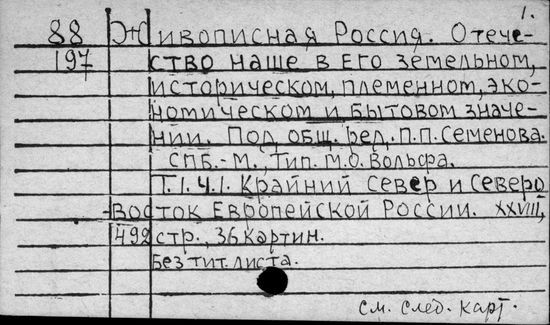 1.
88 Живописная Россия. Отече-
197 ство наше в его земельном,
историческом, племенном, эко-
номическом и бытовом значе-
нии. Под общ. ред. П.П. Семенова.
СПБ.-М., Тип. М.О. Вольфа.
Т.1.Ч.1. Крайний Север и Северо
-восток Европейской России. XXVIII,
492 стр., 36 картин.
Без тит. листа.
См. след. карт.